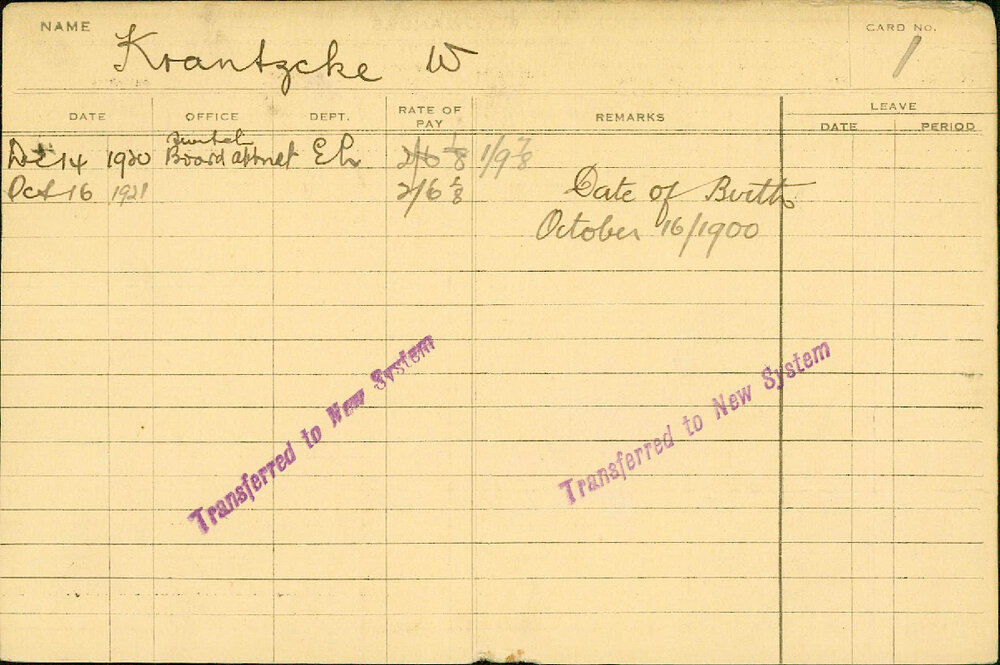 NAME Krantzcke W CARD NO. 1
DATE OFFICE DEPT. RATE OF PAY REMARKS LEAVE
DATE PERIOD
Dec 14 1920 Board 2/6 1/8 1/9 7/8
Oct 16 1921 2/6 1/8 Date of Birth
October 16/1900
Transferred to New System
Transferred to New System